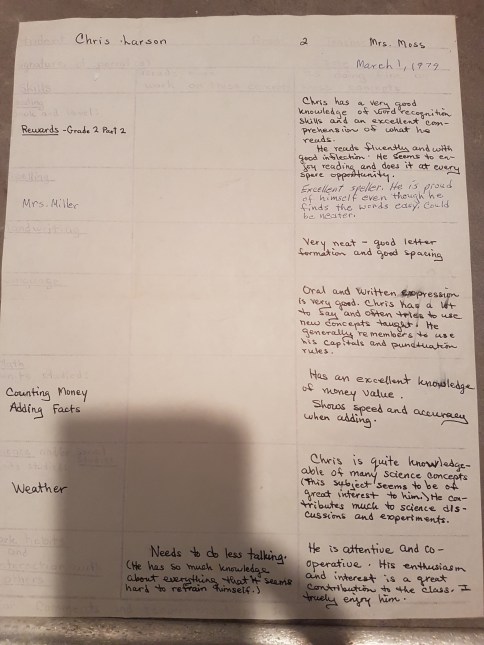 Chris Larson 2 Mrs. Moss
March 1, 1979
Chris has a very good
knowledge of word recognition
skills and an excellent com-
prehension of what he
reads.
Rewards - Grade 2 Part 2
He reads fluently and with
good inflection. He seems to en-
joy reading and does it at every
spare opportunity.
Mrs. Miller
Excellent speller. He is proud
of himself even though he
finds the words easy. Could
be neater.
Very neat - good letter
formation and good spacing
Oral and written expression
is very good. Chris has a lot
to say and often tries to use
new concepts taught. He
generally remembers to use
his capitals and punctuation
rules.
Counting Money
Adding Facts
Has an excellent knowledge
of money value.
Shows speed and accuracy
when adding.
Weather
Chris is quite knowledge-
able of many science concepts
(This subject seems to be of
great interest to him.) He con-
tributes much to science dis-
cussions and experiments.
Needs to do less talking.
(He has so much knowledge
about everything that it seems
hard to refrain himself.)
He is attentive and co-
operative. His enthusiasm
and interest is a great
contribution to the class. I
truely enjoy him.